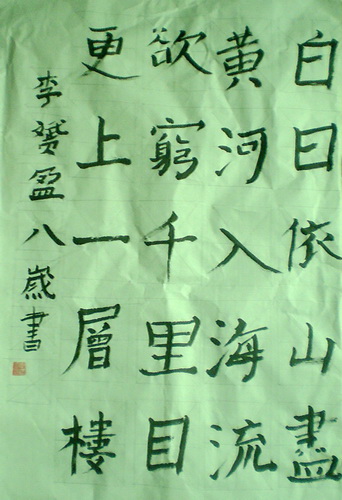 白日依山盡
黄河入海流
欲窮千里目
更上一層樓
李赟盈八歲書